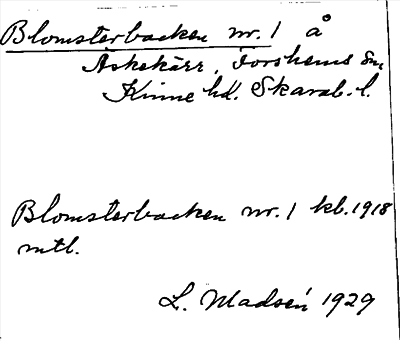 Blomsterbacken nr. 1 å
Åskekärr, Forshems sn,
Kinne hd. Skarab. l.
Blomsterbacken nr. 1 kb. 1918
mtl.
L. Madsén 1929